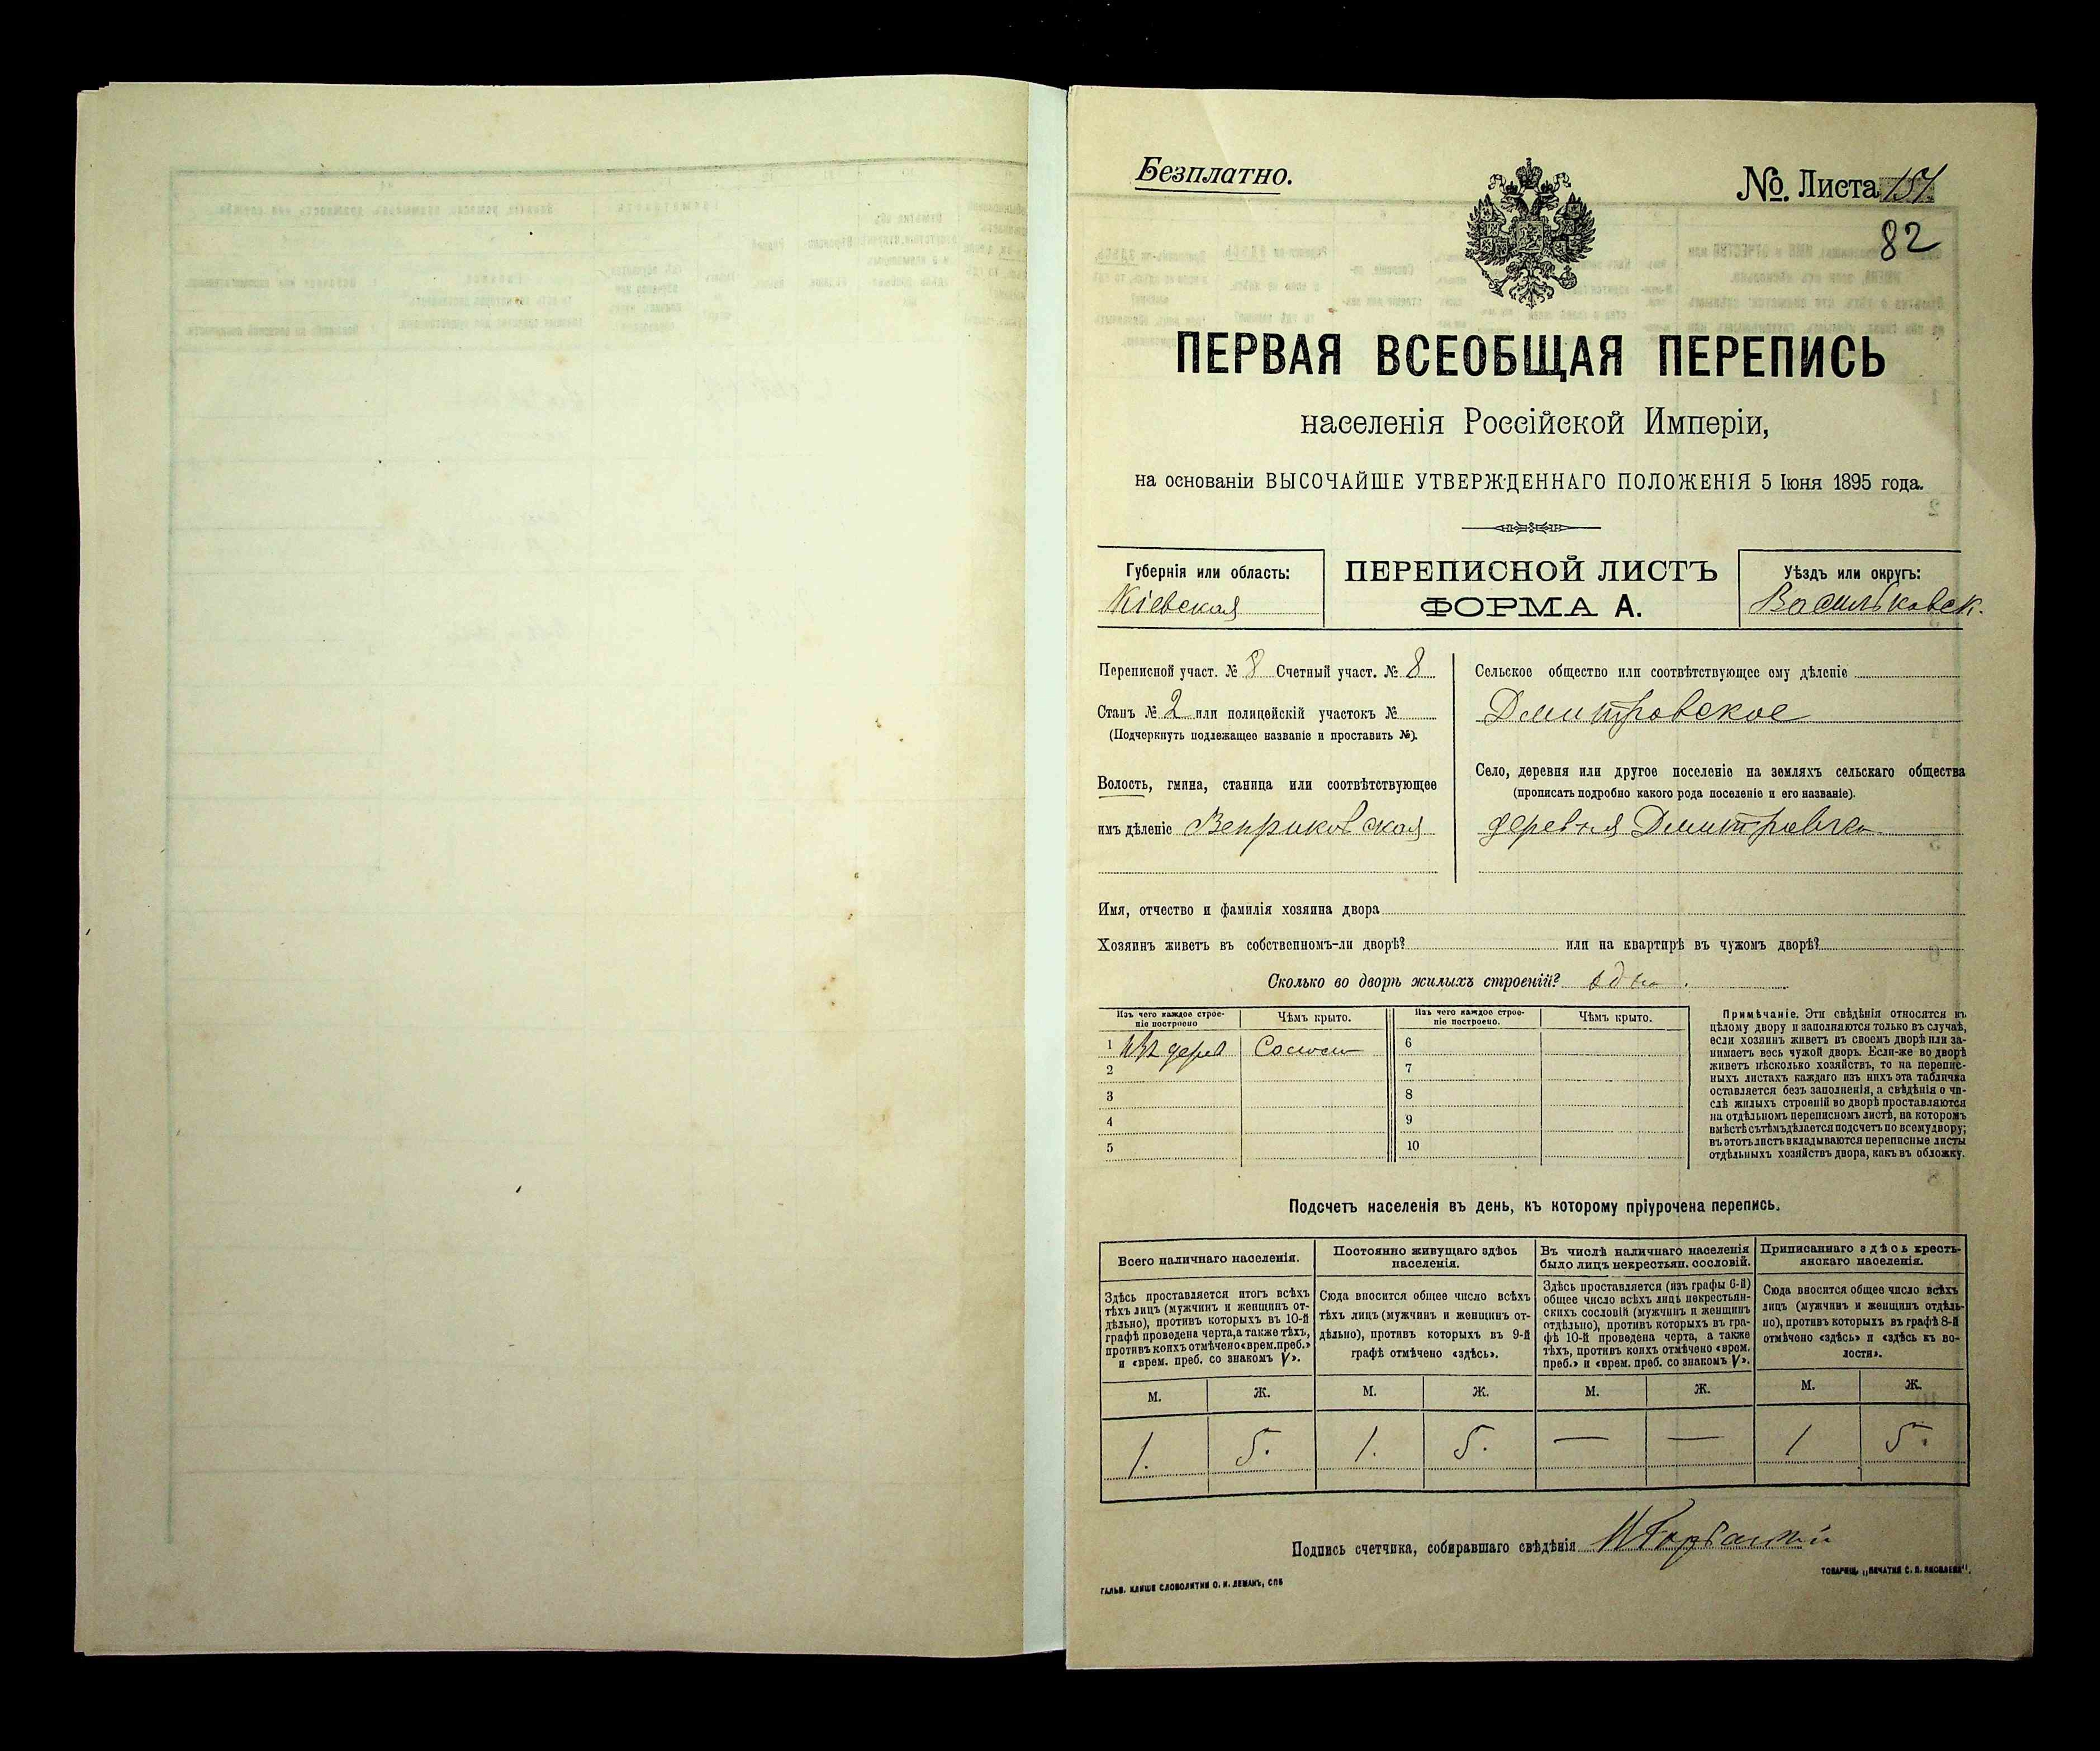 Безплатно.
№. Листа 151.
82
ПЕРВАЯ ВСЕОБЩАЯ ПЕРЕПИСЬ
населенія Россійской Имперіи,
на основаніи ВЫСОЧАЙШЕ УТВЕРЖДЕННАГО ПОЛОЖЕНІЯ 5 Іюня 1895 года.
Губернія или область:
Кіевская
ПЕРЕПИСНОЙ ЛИСТЪ
ФОРМА А.
Уѣздъ или округъ:
Васильковск.
Переписной участ. № 8 Счетный участ. № 8
Станъ № 2 или полицейскій участокъ №
(Подчеркнуть подлежащее названіе и проставить №).
Волость, гмина, станица или соотвѣтствующее
имъ дѣленіе Веприковская
Сельское общество или соотвѣтствующее ему дѣленіе
Дмитровское
Село, деревня или другое поселеніе на земляхъ сельскаго общества
(прописать подробно какого рода поселеніе и его названіе).
деревня Дмитровка
Имя, отчество и фамилія хозяина двора
Хозяинъ живетъ въ собственномъ-ли дворѣ? или на квартирѣ въ чужомъ дворѣ?
Сколько во дворѣ жилыхъ строеній? одно.
Изъ чего каждое строе-
ніе построено
Чѣмъ крыто.
Изъ чего каждое строе-
ніе построено.
Чѣмъ крыто.
1 изъ дерев Солом 6
2 7
3 8
4 9
5 10
Примѣчаніе. Эти свѣдѣнія относятся къ
цѣлому двору и заполняются только въ случаѣ,
если хозяинъ живетъ въ своемъ дворѣ или за-
нимаетъ весь чужой дворъ. Если-же во дворѣ
живетъ нѣсколько хозяйствъ, то на перепис-
ныхъ листахъ каждаго изъ нихъ эта табличка
оставляется безъ заполненія, а свѣдѣнія о чи-
слѣ жилыхъ строеній во дворѣ проставляются
на отдѣльномъ переписномъ листѣ, на которомъ
вмѣстѣ съ тѣмъ дѣлается подсчетъ по всему двору;
въ этотъ листъ вкладываются переписные листы
отдѣльныхъ хозяйствъ двора, какъ въ обложку.
Подсчетъ населенія въ день, къ которому пріурочена перепись.
Всего наличнаго населенія.
Здѣсь проставляется итогъ всѣхъ
тѣхъ лицъ (мужчинъ и женщинъ от-
дѣльно), противъ которыхъ въ 10-й
графѣ проведена черта, а также тѣхъ,
противъ коихъ отмѣчено «врем. преб.»
и «врем. преб. со знакомъ V».
Постоянно живущаго здѣсь
населенія.
Сюда вносится общее число всѣхъ
тѣхъ лицъ (мужчинъ и женщинъ от-
дѣльно), противъ которыхъ въ 9-й
графѣ отмѣчено «здѣсь».
Въ числѣ наличнаго населенія
было лицъ некрестьян. сословій.
Здѣсь проставляется (изъ графы 6-й)
общее число всѣхъ лицъ некрестьян-
скихъ сословій (мужчинъ и женщинъ
отдѣльно), противъ которыхъ въ гра-
фѣ 10-й проведена черта, а также
тѣхъ, противъ коихъ отмѣчено «врем.
преб.» и «врем. преб. со знакомъ V».
Приписаннаго здѣсь кресть-
янскаго населенія.
Сюда вносится общее число всѣхъ
лицъ (мужчинъ и женщинъ отдѣль-
но), противъ которыхъ въ графѣ 8-й
отмѣчено «здѣсь» и «здѣсь къ во-
лости».
М. Ж. М. Ж. М. Ж. М. Ж.
1. 5. 1. 5. — — 1 5.
Подпись счетчика, собиравшаго свѣдѣнія
ГАЛЬВ. КЛИШЕ СЛОВОЛИТНИ О. И. ЛЕМАНЪ, СПБ
ТОВАРИЩ. „ПЕЧАТНЯ С. П. ЯКОВЛЕВА".